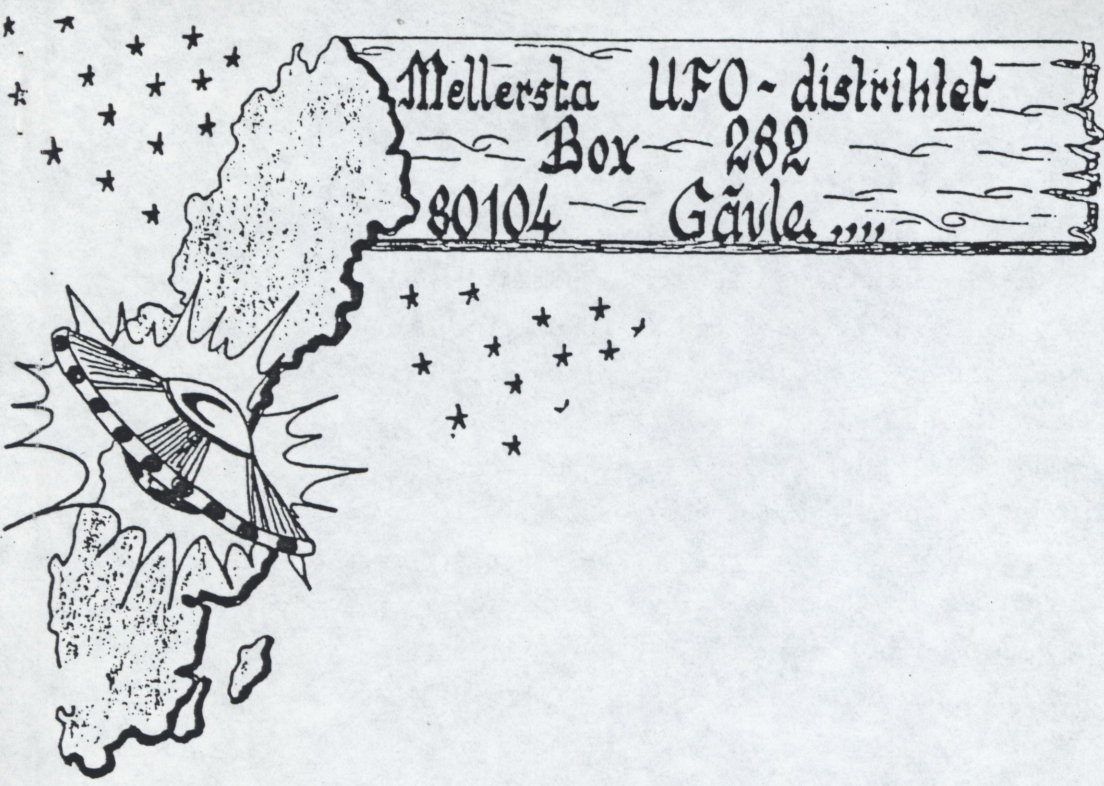 Mellersta UFO-distriktet
Box 282
80104 Gävle,,,,